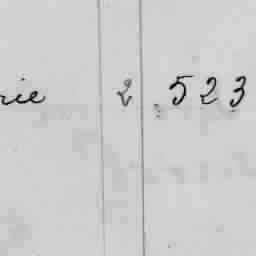 rie 2 523